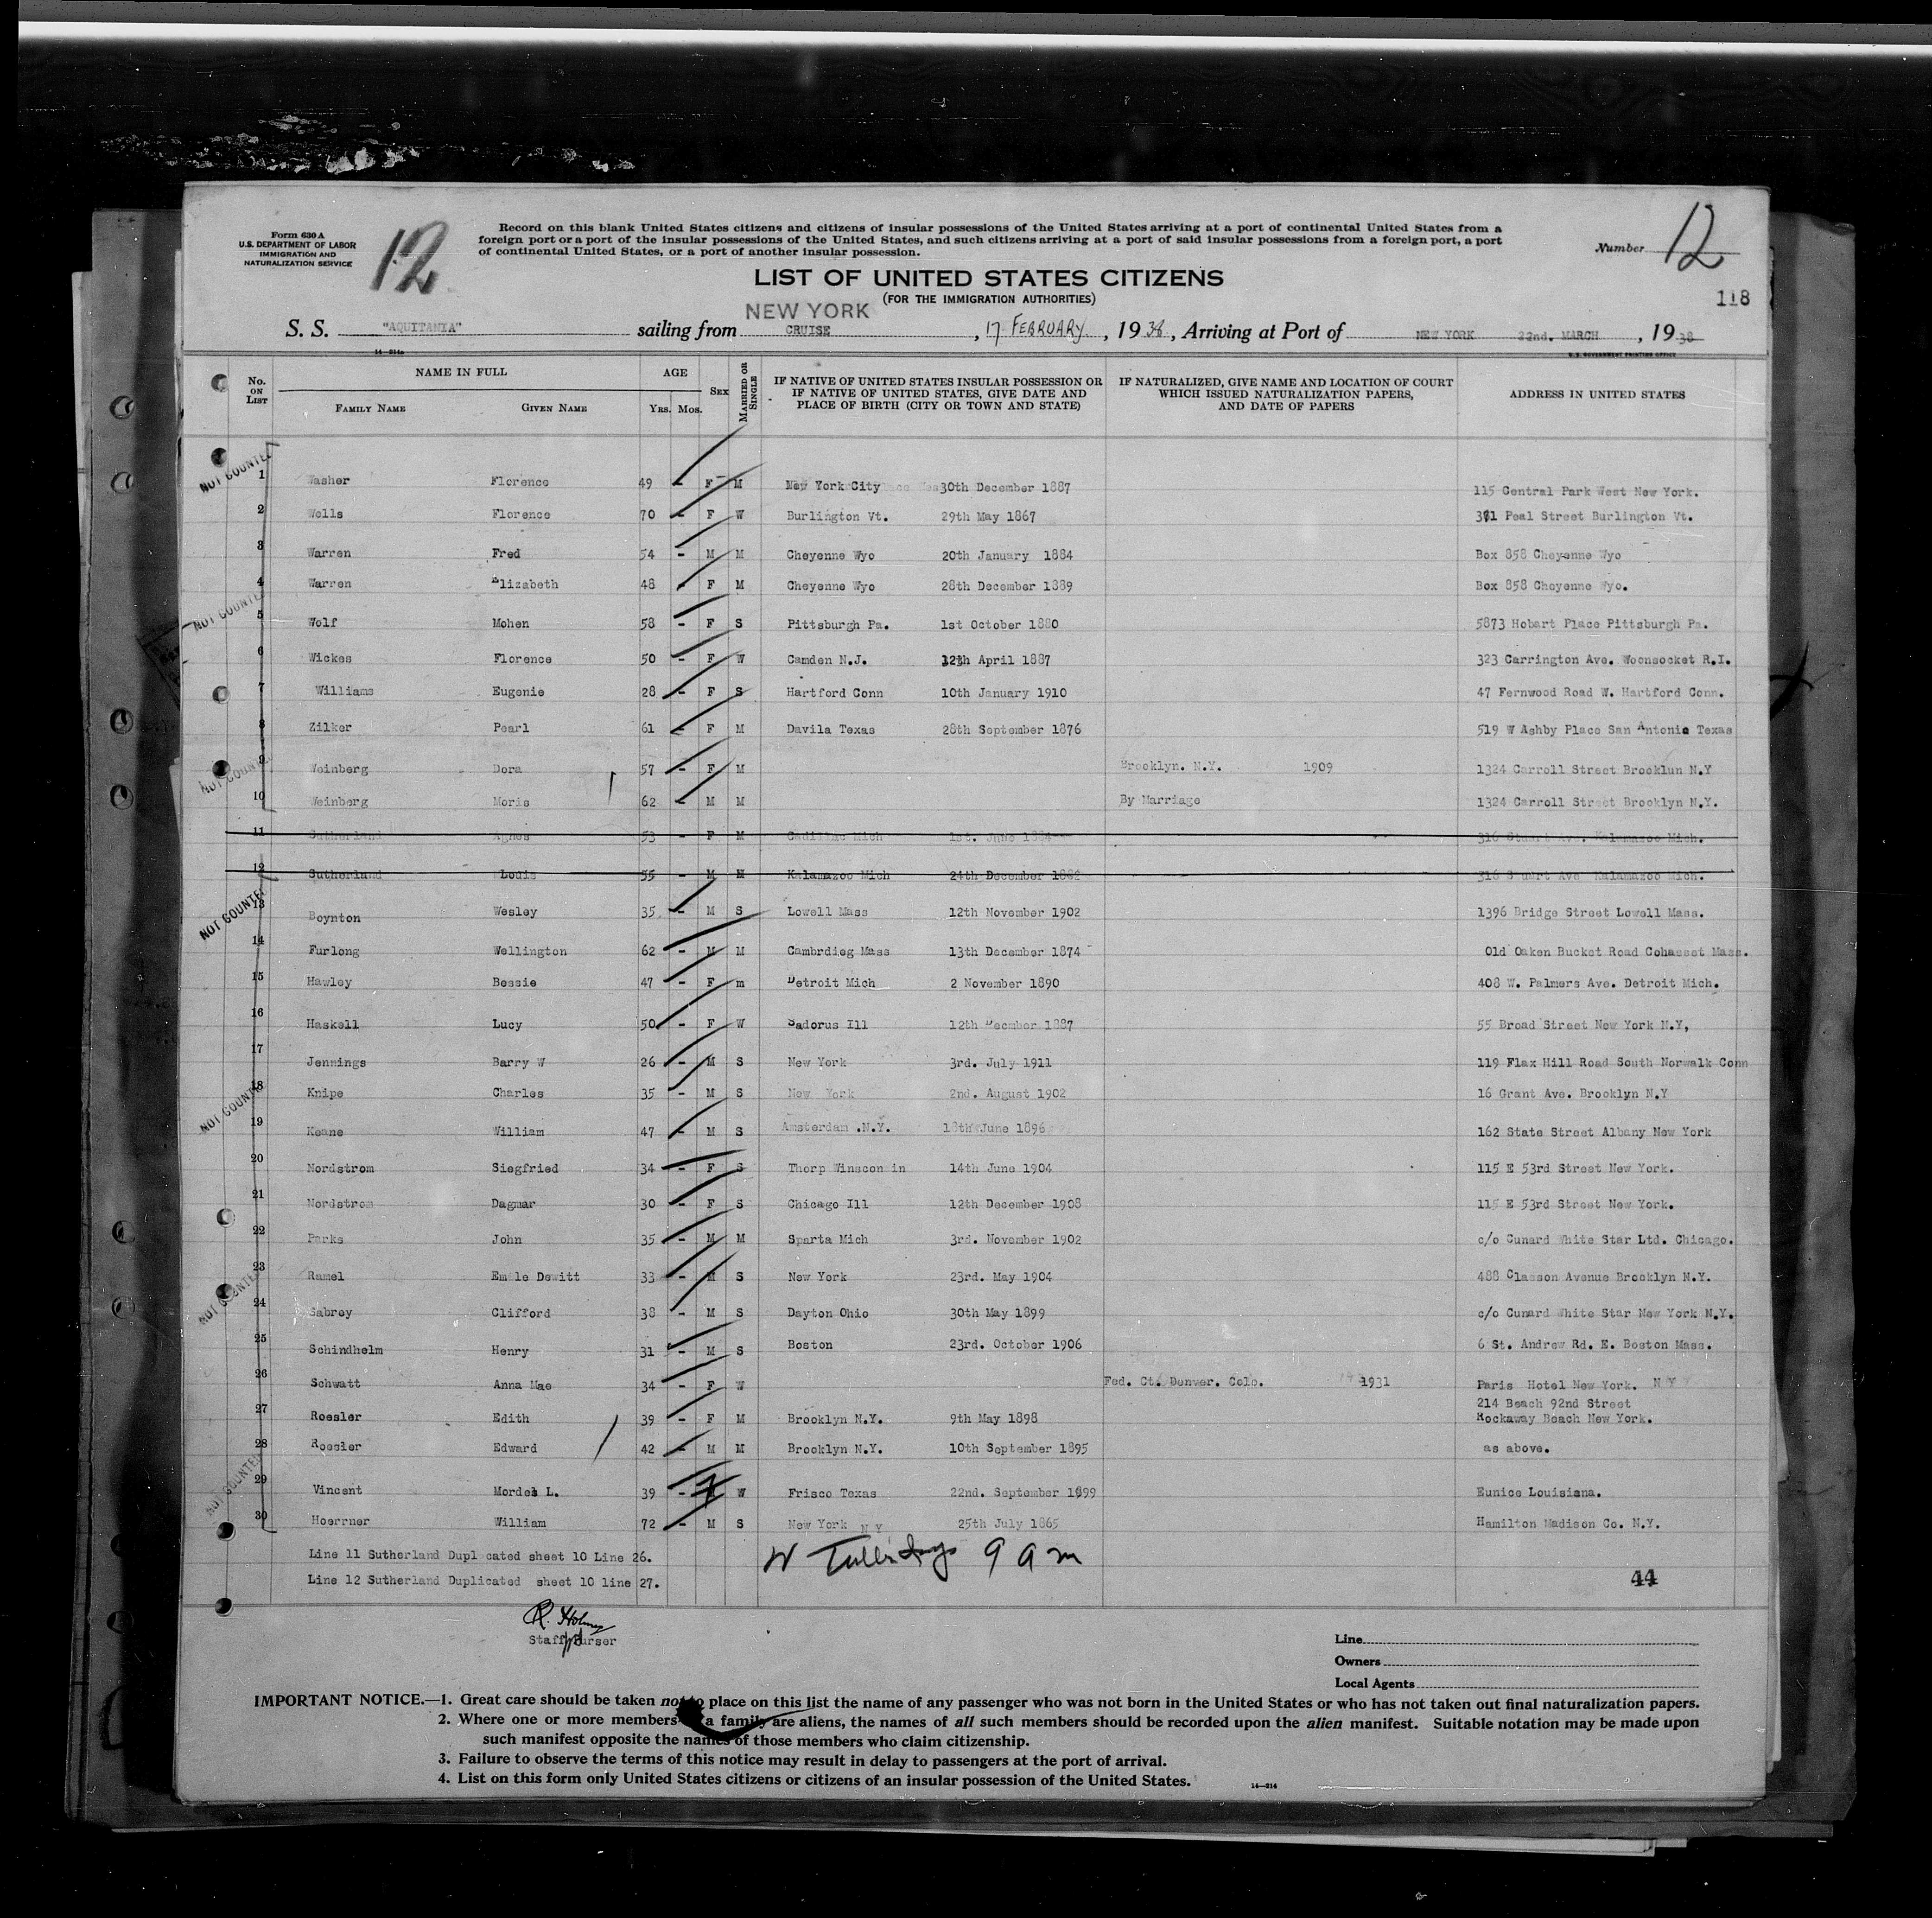 Form 630 A
U.S. DEPARTMENT OF LABOR
IMMIGRATION AND
NATURALIZATION SERVICE
12
Record on this blank United States citizens and citizens of insular possessions of the United States arriving at a port of continental United States from a
foreign port or a port of the insular possessions of the United States, and such citizens arriving at a port of said insular possessions from a foreign port, a port
of continental United States, or a port of another insular possession.
Number 12
LIST OF UNITED STATES CITIZENS
(FOR THE IMMIGRATION AUTHORITIES)
118
NEW YORK
S. S. "AQUITANIA" sailing from CRUISE, 17 FEBRUARY, 1938, Arriving at Port of NEW YORK 22nd. MARCH, 1938
14-214a
U.S. GOVERNMENT PRINTING OFFICE
No. ON LIST
NAME IN FULL
FAMILY NAME GIVEN NAME
AGE
YRS. MOS.
SEX
MARRIED OR SINGLE
IF NATIVE OF UNITED STATES INSULAR POSSESSION OR
IF NATIVE OF UNITED STATES, GIVE DATE AND
PLACE OF BIRTH (CITY OR TOWN AND STATE)
IF NATURALIZED, GIVE NAME AND LOCATION OF COURT
WHICH ISSUED NATURALIZATION PAPERS,
AND DATE OF PAPERS
ADDRESS IN UNITED STATES
NOT COUNTED
1 Washer Florence 49 - F M New York City 30th December 1887 115 Central Park West New York.
2 Wells Florence 70 - F W Burlington Vt. 29th May 1867 371 Peal Street Burlington Vt.
3 Warren Fred 54 - M M Cheyenne Wyo 20th January 1884 Box 858 Cheyenne Wyo
4 Warren Elizabeth 48 - F M Cheyenne Wyo 28th December 1889 Box 858 Cheyenne Wyo.
NOT COUNTED
5 Wolf Mohen 58 - F S Pittsburgh Pa. 1st October 1880 5873 Hobart Place Pittsburgh Pa.
6 Wickes Florence 50 - F W Camden N.J. 12th April 1887 323 Carrington Ave. Woonsocket R.I.
7 Williams Eugenie 28 - F S Hartford Conn 10th January 1910 47 Fernwood Road W. Hartford Conn.
8 Zilker Pearl 61 - F M Davila Texas 28th September 1876 519 W Ashby Place San Antonio Texas
NOT COUNTED
9 Weinberg Dora 57 - F M Brooklyn. N.Y. 1909 1324 Carroll Street Brooklun N.Y
10 Weinberg Moris 62 - M M By Marriage 1324 Carroll Street Brooklyn N.Y.
11 Sutherland Agnes 53 - F M Cadillac Mich 1st. June 1884 316 Stuart Ave. Kalamazoo Mich.
12 Sutherland Louis 55 - M M Kalamazoo Mich 24th December 1882 316 Stuart Ave Kalamazoo Mich.
NOT COUNTED
13 Boynton Wesley 35 - M S Lowell Mass 12th November 1902 1396 Bridge Street Lowell Mass.
14 Furlong Wellington 62 - M M Cambrdieg Mass 13th December 1874 Old Oaken Bucket Road Cohasset Mass.
15 Hawley Bessie 47 - F m Detroit Mich 2 November 1890 408 W. Palmers Ave. Detroit Mich.
16 Haskell Lucy 50 - F W Sadorus Ill 12th Decmber 1887 55 Broad Street New York N.Y,
17 Jennings Barry W 26 - M S New York 3rd. July 1911 119 Flax Hill Road South Norwalk Conn
NOT COUNTED
18 Knipe Charles 35 - M S New York 2nd. August 1902 16 Grant Ave. Brooklyn N.Y
19 Keane William 47 - M S Amsterdam .N.Y. 18th June 1896 162 State Street Albany New York
20 Nordstrom Siegfried 34 - F S Thorp Winscon in 14th June 1904 115 E 53rd Street New York.
21 Nordstrom Dagmar 30 - F S Chicago Ill 12th December 1908 115 E 53rd Street New York.
22 Parks John 35 - M M Sparta Mich 3rd. November 1902 c/o Cunard White Star Ltd. Chicago.
23 Ramel Emile Dewitt 33 - M S New York 23rd. May 1904 488 Classon Avenue Brooklyn N.Y.
NOT COUNTED
24 Sabrey Clifford 38 - M S Dayton Ohio 30th May 1899 c/o Cunard White Star New York N.Y.
25 Schindhelm Henry 31 - M S Boston 23rd. October 1906 6 St. Andrew Rd. E. Boston Mass.
26 Schwatt Anna Mae 34 - F W Fed. Ct. Denver. Colo. 1931 Paris Hotel New York. N Y
27 Roesler Edith 39 - F M Brooklyn N.Y. 9th May 1898 214 Beach 92nd Street
Rockaway Beach New York.
28 Roesler Edward 42 - M M Brooklyn N.Y. 10th September 1895 as above.
NOT COUNTED
29 Vincent Mordes L. 39 - W Frisco Texas 22nd. September 1899 Eunice Louisiana.
30 Hoerrner William 72 - M S New York N Y 25th July 1865 Hamilton Madison Co. N.Y.
Line 11 Sutherland Dupl cated sheet 10 Line 26.
Line 12 Sutherland Duplicated sheet 10 line 27.
9 am
44
Staff Purser
Line
Owners
Local Agents
IMPORTANT NOTICE.—1. Great care should be taken not to place on this list the name of any passenger who was not born in the United States or who has not taken out final naturalization papers.
2. Where one or more members a family are aliens, the names of all such members should be recorded upon the alien manifest. Suitable notation may be made upon
such manifest opposite the names of those members who claim citizenship.
3. Failure to observe the terms of this notice may result in delay to passengers at the port of arrival.
4. List on this form only United States citizens or citizens of an insular possession of the United States.
14-214